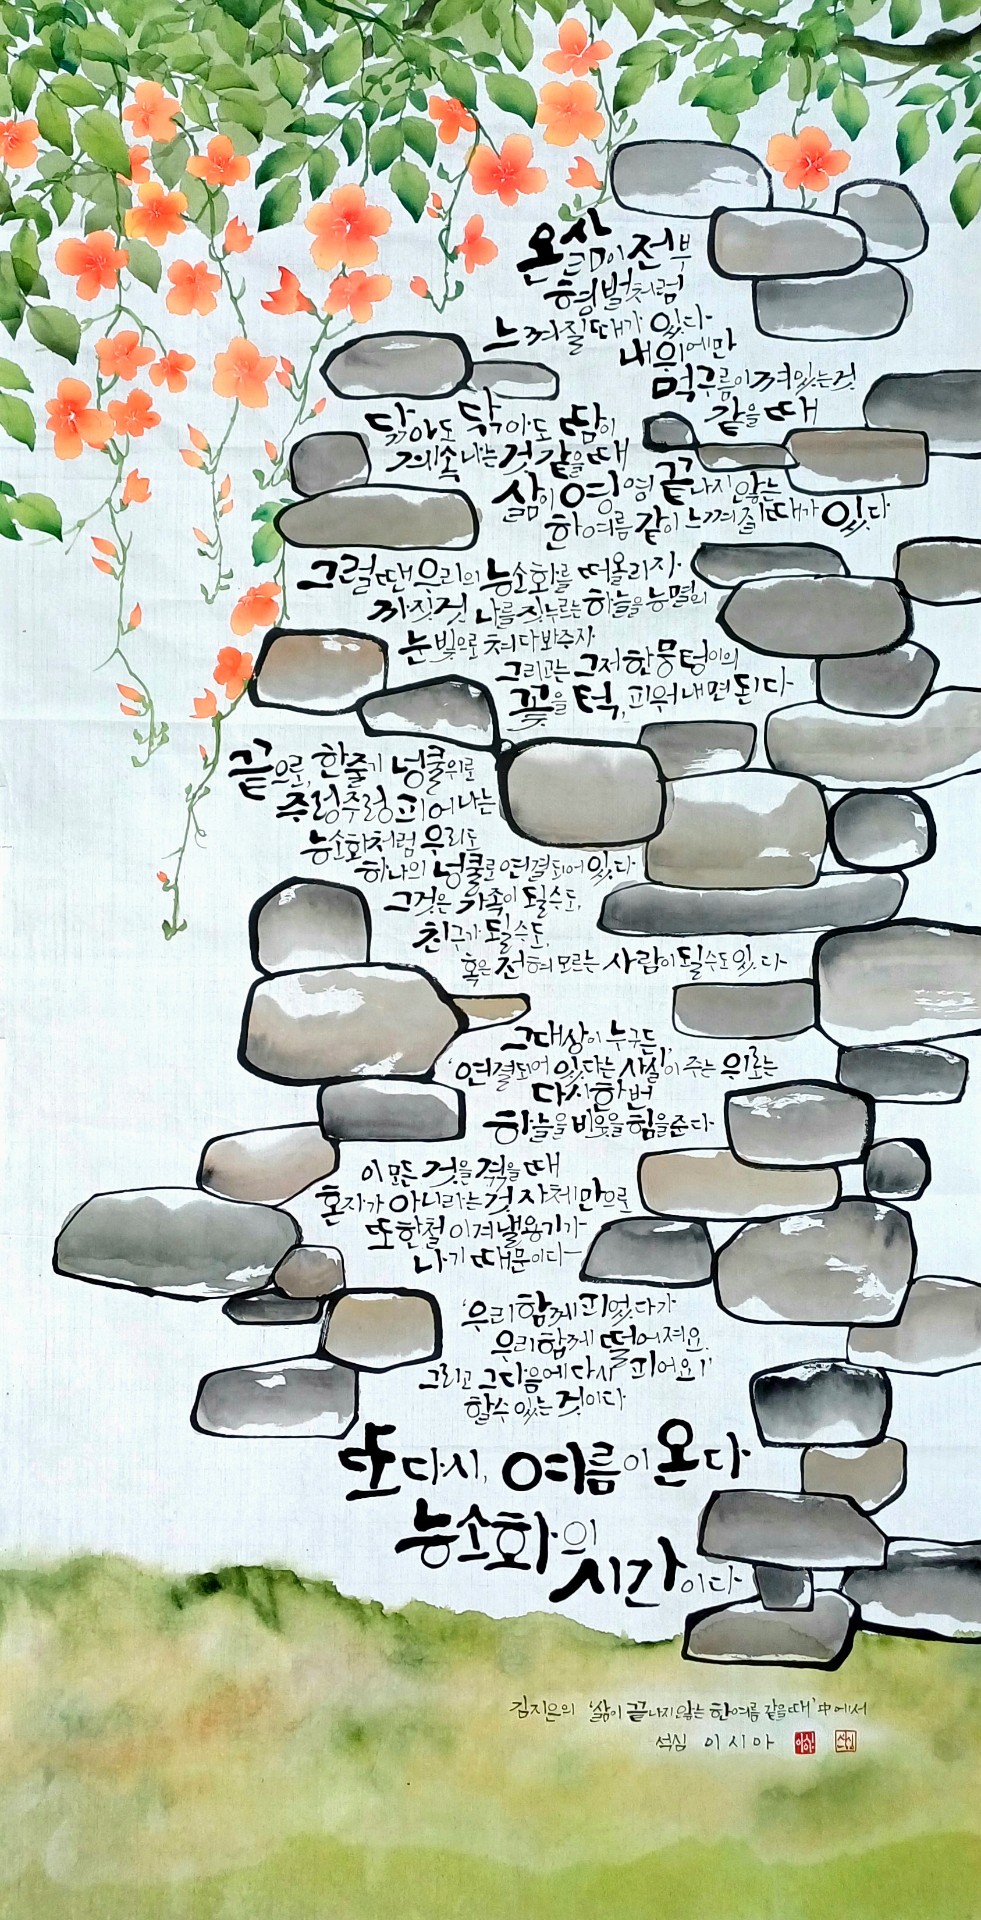 온 삶이 전부
형벌처럼
느껴질 때가 있다
내 위에만
먹구름이 껴있는 것
같을 때
닦아도 닦아도 땀이
계속 나는 것 같을 때
삶이 영영 끝나지 않는
한여름 같이 느껴질 때가 있다
그럴 땐 우리의 능소화를 떠올리자
까짓것 나를 짓누르는 하늘을 능멸의
눈빛으로 쳐다봐주자
그리고는 그저 한 뭉텅이의
꽃을 턱, 피워내면 된다
끝으로, 한 줄기 넝쿨 위로
주렁주렁 피어나는
능소화처럼 우리도
하나의 넝쿨로 연결되어 있다
그것은 가족이 될 수도,
친구가 될 수도,
혹은 전혀 모르는 사람이 될 수도 있다
그 대상이 누구든,
'연결되어 있다는 사실'이 주는 위로는
다시 한 번
하늘을 비웃을 힘을 준다
이 모든 것을 겪을 때
혼자가 아니라는 것 자체만으로
또 한철 이겨낼 용기가
나기 때문이다
'우리 함께 피었다가
우리 함께 떨어져요
그리고 그 다음에 다시 피어요!'
할 수 있는 것이다
또다시, 여름이 온다
능소화의
시간이다
김지은의 '삶이 끝나지 않는 한여름 같을 때' 中에서
석심 이시아